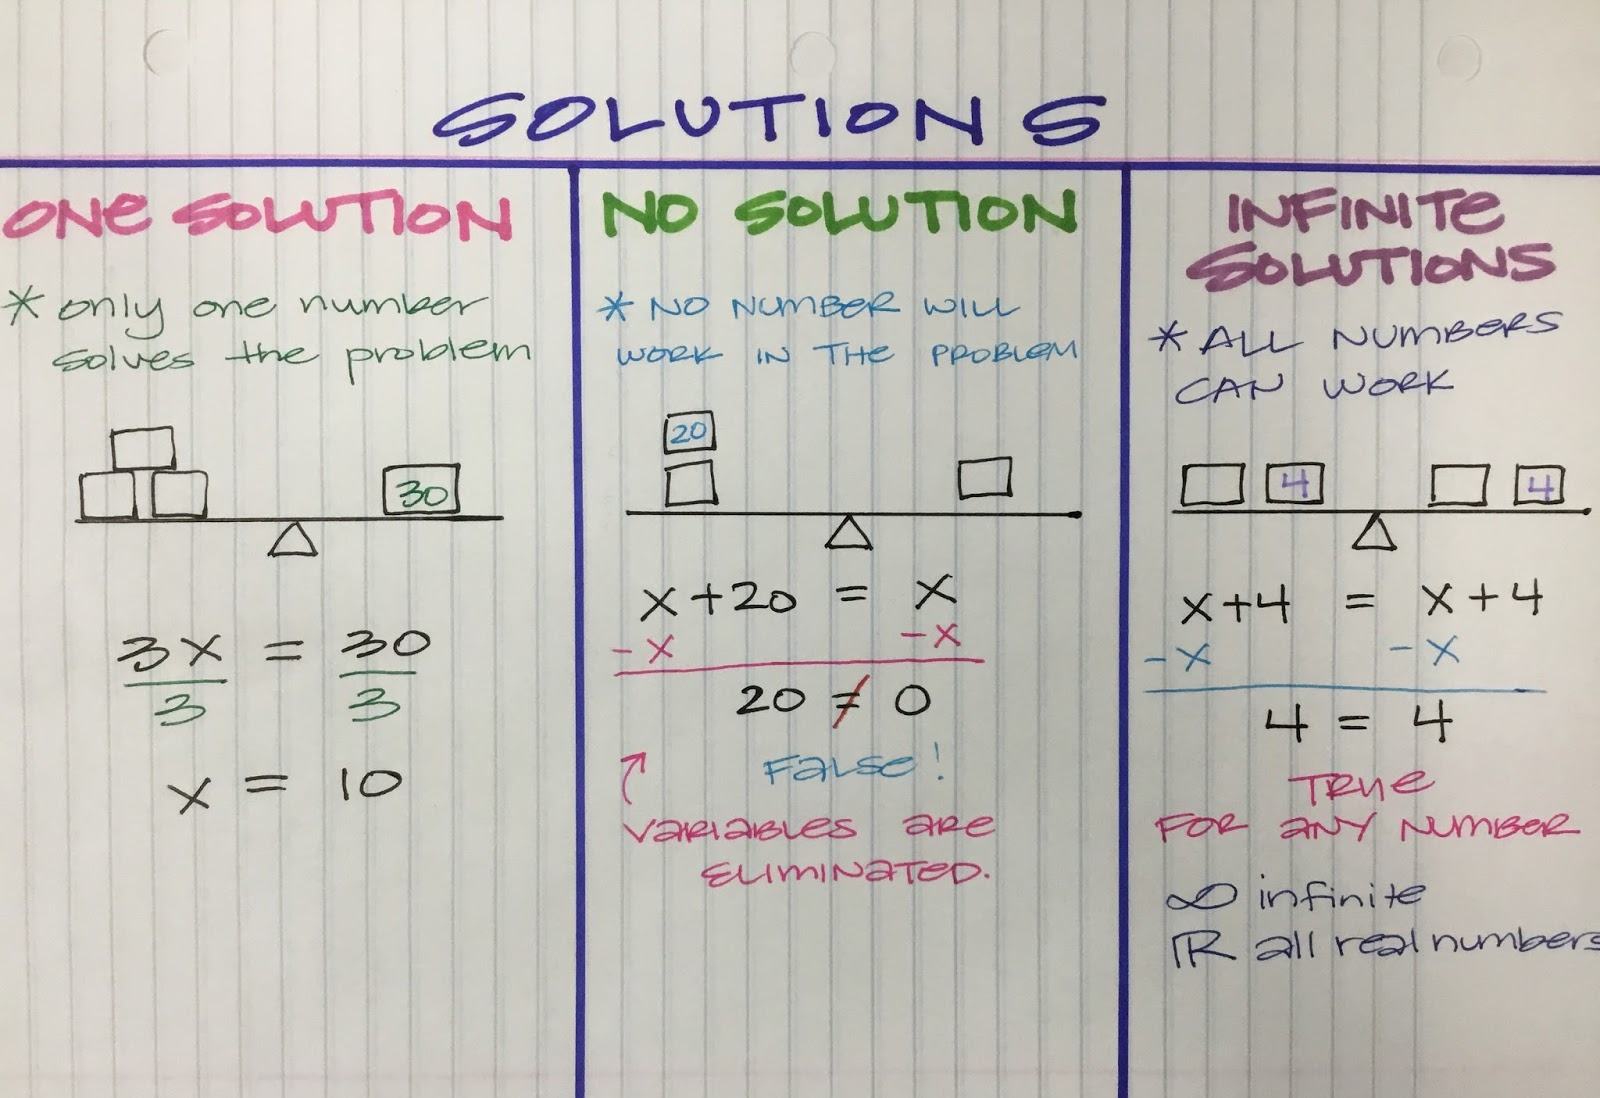 SOLUTIONS
ONE SOLUTION
* only one number
solves the problem
30
3x = 30
3 3
x = 10
NO SOLUTION
* NO NUMBER WILL
WORK IN THE PROBLEM
20
x + 20 = x
- x - x
20 ≠ 0
False!
VARIABLES ARE
ELIMINATED.
INFINITE
SOLUTIONS
* ALL NUMBERS
CAN WORK
4 4
x + 4 = x + 4
- x - x
4 = 4
TRUE
FOR ANY NUMBER
∞ infinite
ℝ all real numbers